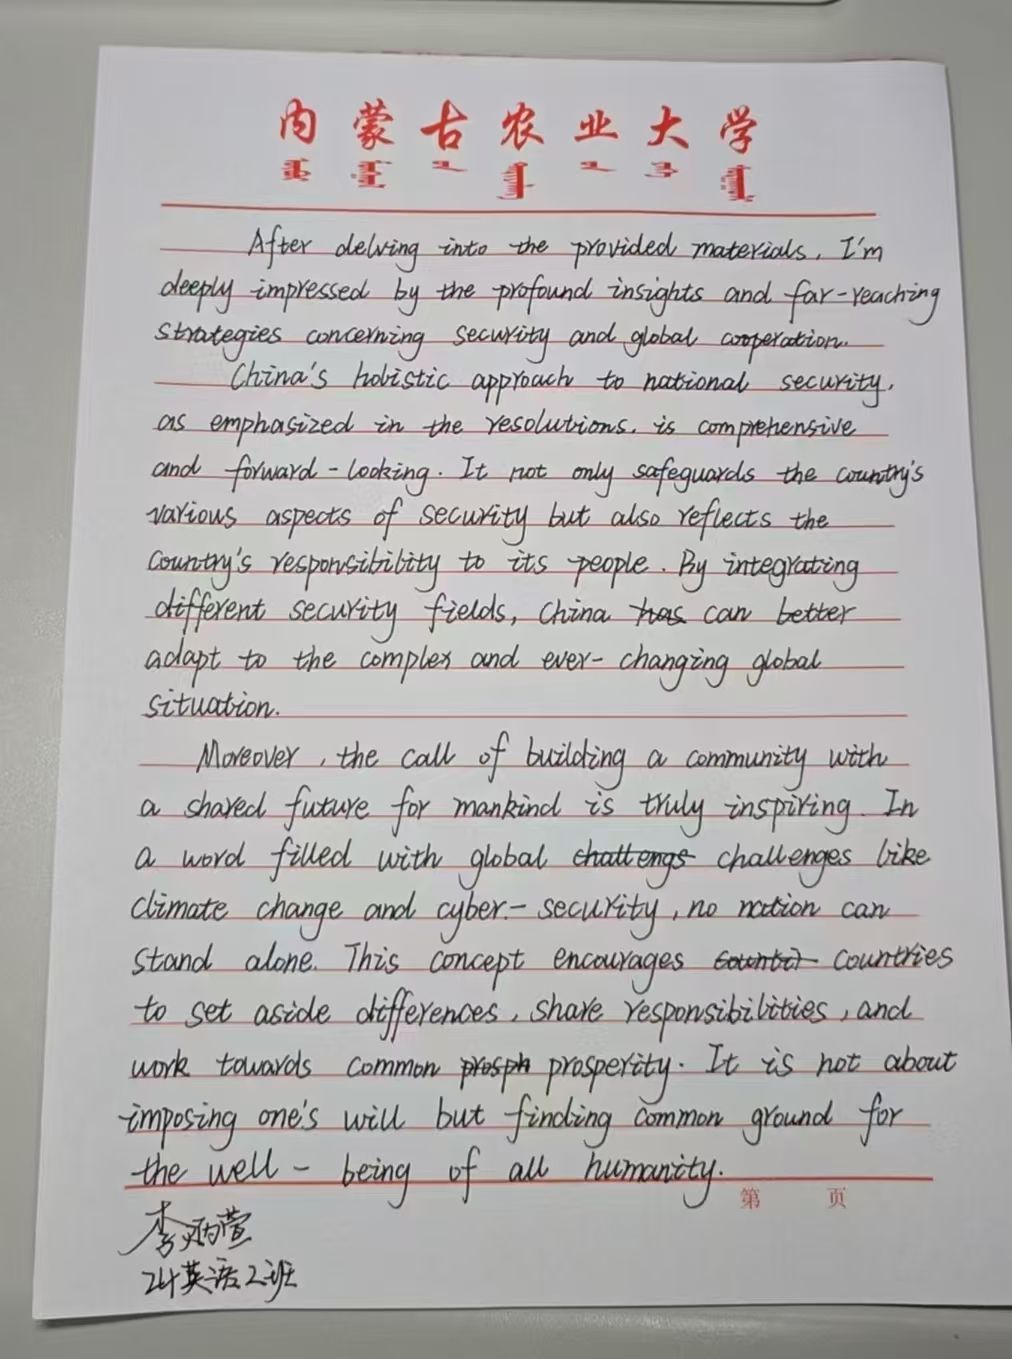 内蒙古农业大学
After delving into the provided materials, I'm
deeply impressed by the profound insights and far-reaching
strategies concerning security and global cooperation.
China's holistic approach to national security,
as emphasized in the resolutions, is comprehensive
and forward-looking. It not only safeguards the country's
various aspects of security but also reflects the
country's responsibility to its people. By integrating
different security fields, China has can better
adapt to the complex and ever-changing global
situation.
Moreover, the call of building a community with
a shared future for mankind is truly inspiring. In
a word filled with global challengs challenges like
climate change and cyber-security, no nation can
stand alone. This concept encourages countries
to set aside differences, share responsibilities, and
work towards common prosph prosperity. It is not about
imposing one's will but finding common ground for
the well-being of all humanity.
第 页
李炳萱
24英语2班